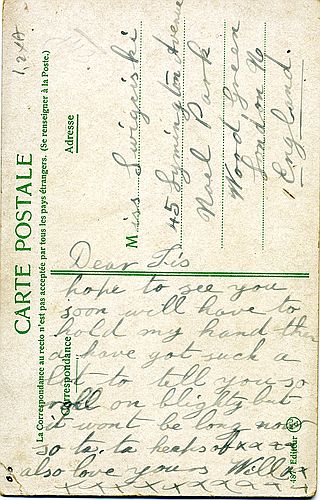 CARTE POSTALE
La Correspondance au recto n'est pas acceptée par tous les pays étrangers. (Se renseigner à la Poste.)
Correspondance
Adresse
Miss Swigciski
45 Lymington Avenue
Noel Park
Wood Green
London N
England.
Dear Sis
hope to see you
soon will have to
hold my hand then
I have got such a
lot to tell you so
roll on blighty but
it wont be long now
so ta. ta heaps of xxxx
also love yours Will xx
xxxxxxxxxxxxx
Editeur